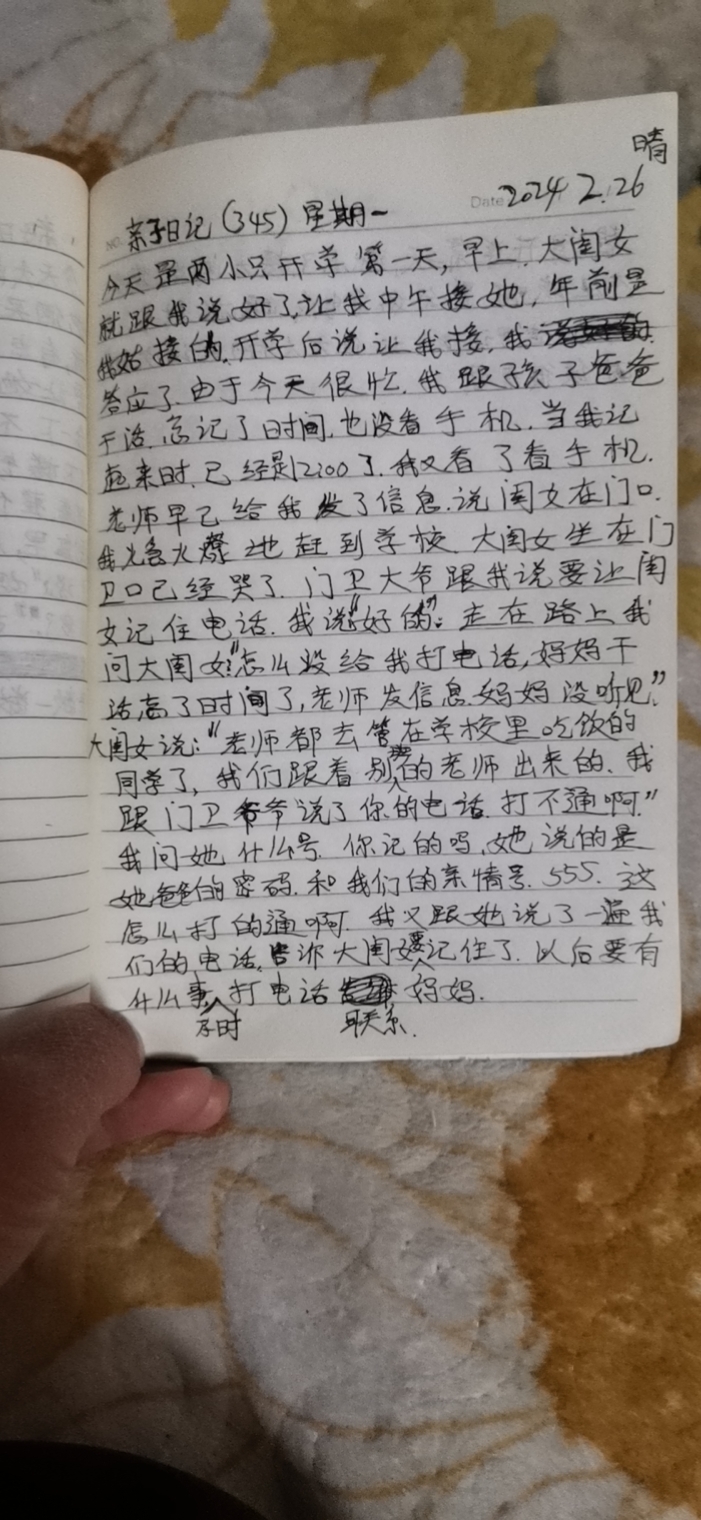 晴
Date 2024 2.26
NO. 亲子日记(345) 星期一
今天是两小只开学第一天,早上.大闺女
就跟我说好了,让我中午接她,年前是
我姑接的,开学后说让我接,我
答应了.由于今天很忙.我跟孩子爸爸
干活.忘记了时间,也没看手机.当我记
起来时.已经是12:00了.我又看了看手机.
老师早已给我发了信息.说闺女在门口.
我火急火燎地赶到学校.大闺女坐在门
卫口已经哭了.门卫大爷跟我说要让闺
女记住电话.我说“好的”.走在路上我
问大闺女:“怎么没给我打电话,妈妈干
活,忘了时间了,老师发信息.妈妈没听见”.
大闺女说:“老师都去管在学校里吃饭的
同学了,我们跟着别班的老师出来的.我
跟门卫爷爷说了你的电话.打不通啊.”
我问她什么号.你记的吗,她说的是
她爸爸的密码.和我们的亲情号.555.这
怎么打的通啊.我又跟她说了一遍我
们的电话.告诉大闺女要记住了.以后要有
什么事及时打电话联系妈妈.